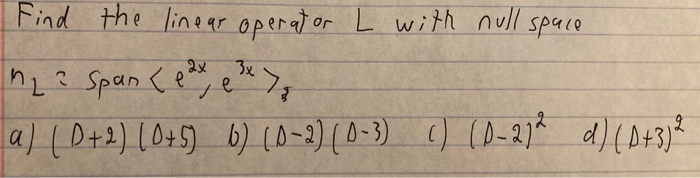 Find the linear operator L with null space
n_L = span < e^{2x}, e^{3x} >
a) (D+2)(D+5) b) (D-2)(D-3) c) (D-2)^2 d) (D+3)^2